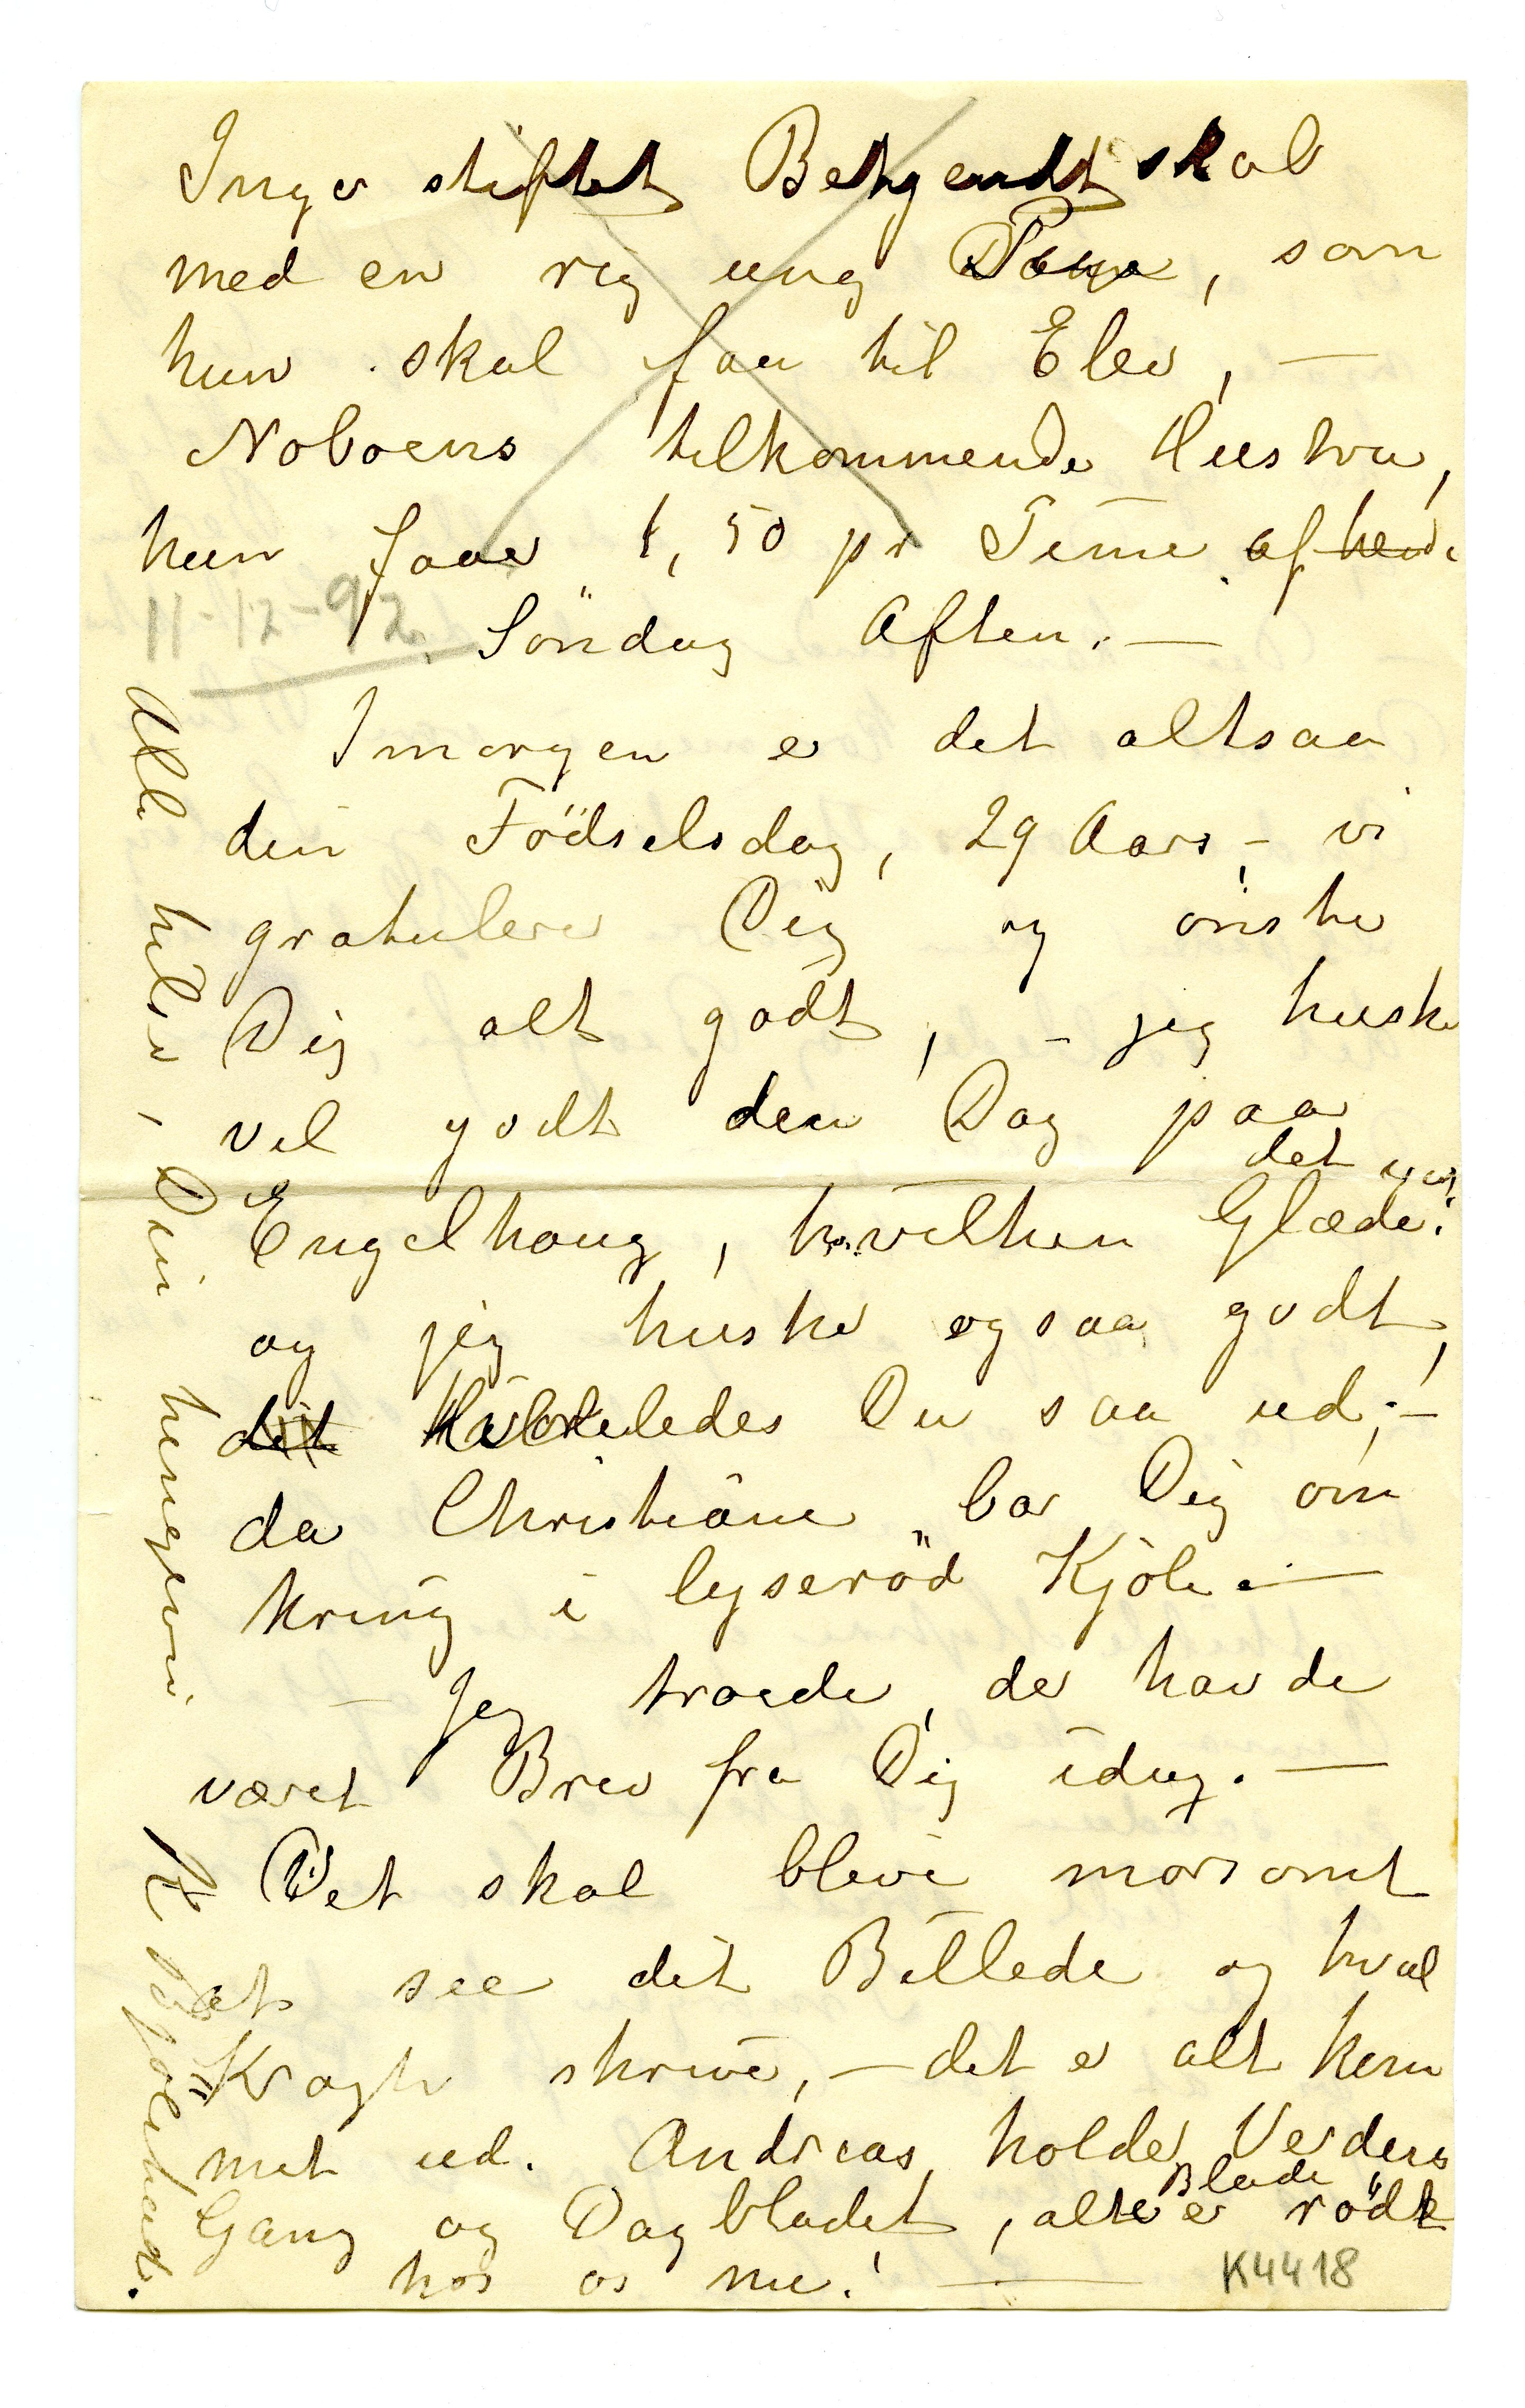 Inger stiftet Bekjendtskab
med en rig ung Dame, som
hun skal faa til Elev, —
Naboens tilkommende Hustru,
hun faaer 1,50 pr Time af hende
11-12-92.
Söndag Aften. —
Imorgen er det altsaa
din Födselsdag, 29 Aars, – vi
gratulerer Dig og önsker
Dig alt godt, – jeg husker
vel godt den Dag paa
det var
Engelhaug, hvilken Glæde!
og jeg husker ogsaa godt,
hvorledes Du saa ud, –
da Christiane bar Dig om
kring i lyseröd Kjole. —
– Jeg troede, der havde
været Brev fra Dig idag. —
Det skal blive morsomt
at see dit Billede og hvad
Krogh skriver, – det er alt kom
met ud. Andreas holder Verdens
Blade
Gang og Dagbladet, alle er röde
hos os nu! —
Alle hilser, Din hengivne
K Bjölstad.
K4418